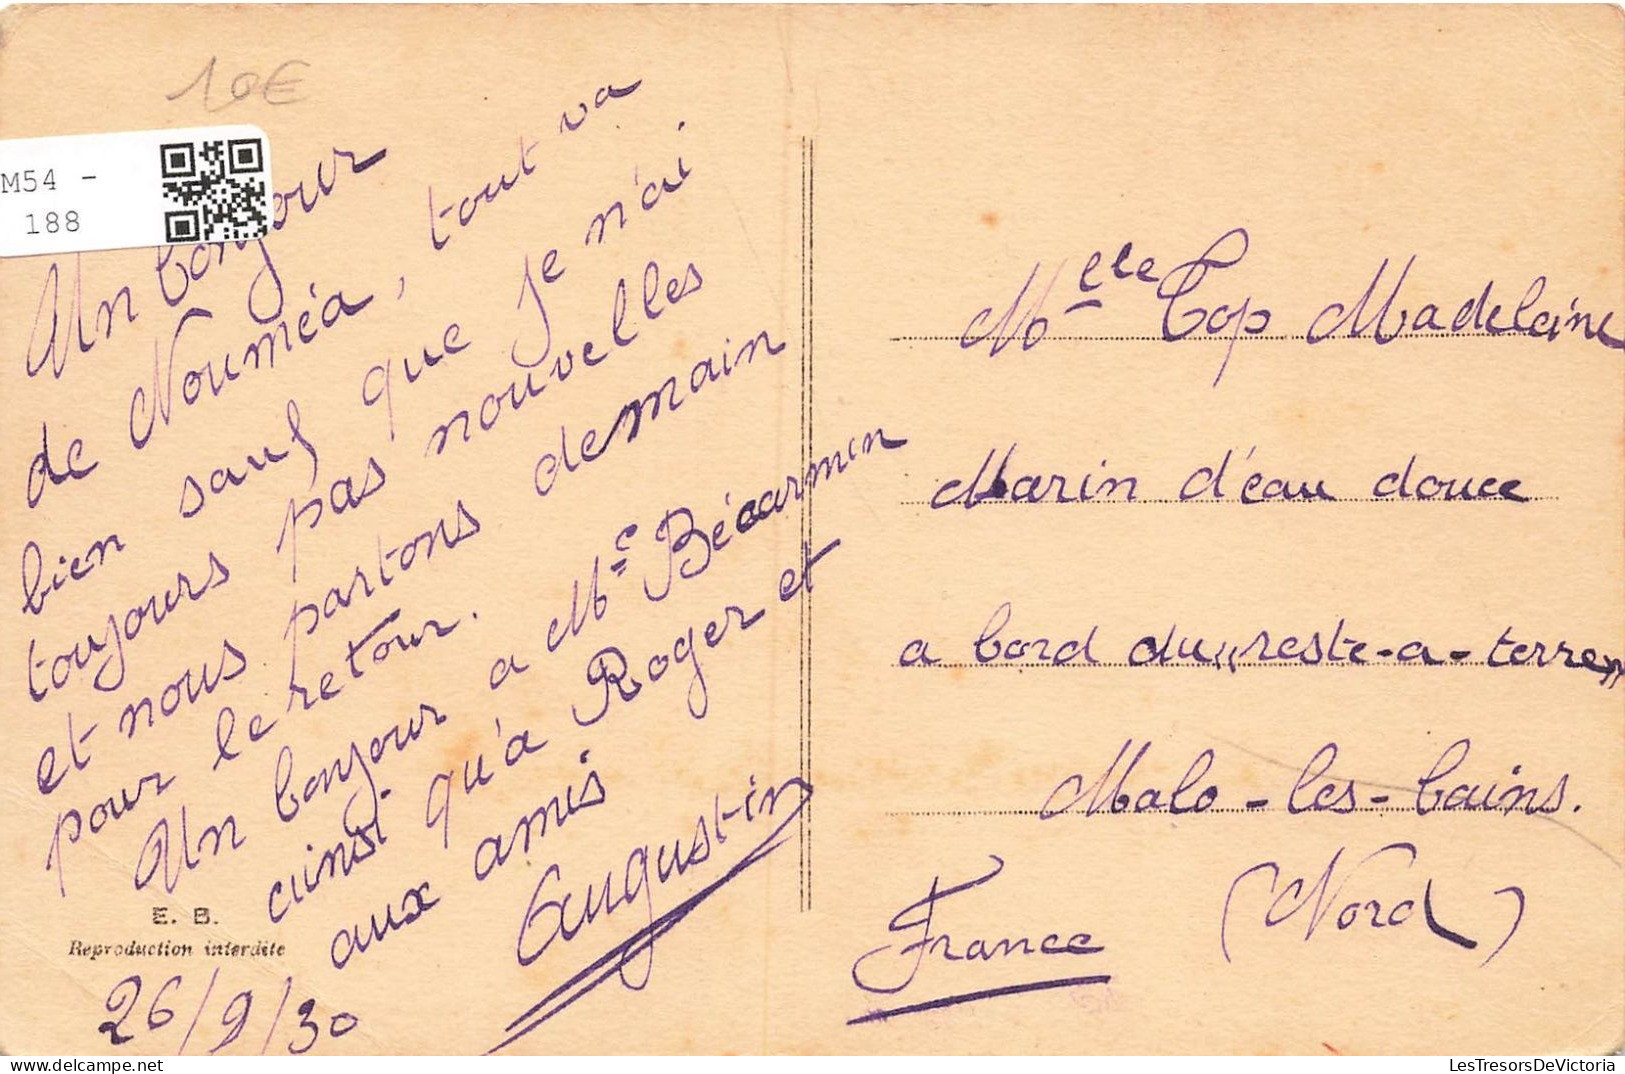 10€
M54 -
188
Un bonjour
de Nouméa, tout va
bien sauf que je n'ai
toujours pas nouvelles
et nous partons demain
pour le retour.
Un bonjour a Me Bécarmin
ainsi qu'a Roger et
aux amis
Augustin
E. B.
Reproduction interdite
26/9/30
Melle Top Madeleine
Marin d'eau douce
a bord du "reste-a-terre"
Malo-les-bains.
(Nord)
France
LesTresorsDeVictoria